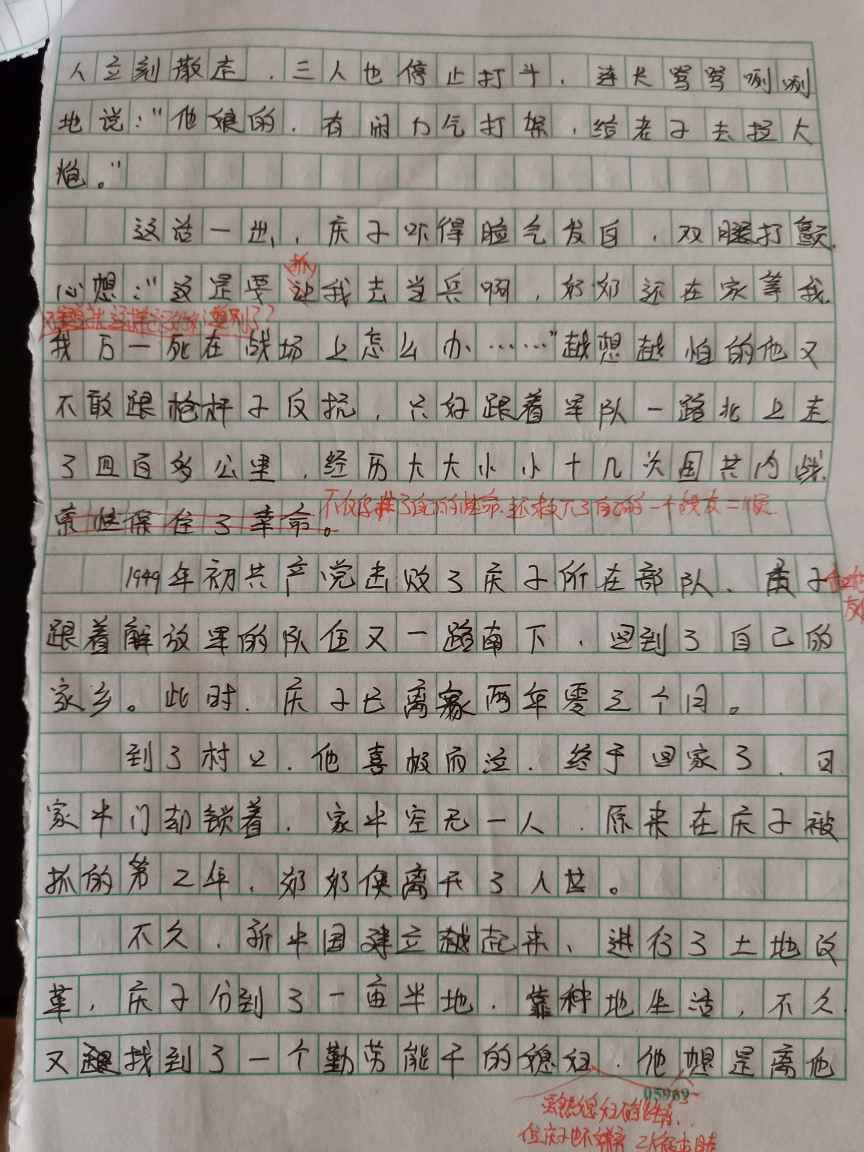 人立刻散走，三人也停止打斗，连长骂骂咧咧
地说："他娘的，有闲力气打架，给老子去拉大
炮。"
这话一出，庆子吓得脸气发白，双腿打颤，
心想："这是要抓我去当兵啊，奶奶还在家等我，
我万一死在战场上怎么办……"越想越怕的他又
不敢跟枪杆子反抗，只好跟着军队一路北上走
了四百多公里，经历大大小小十几次国共内战，
索性保住了幸命。
不仅保住了自己的性命，还救下了自己的一个战友
1949年初共产党击败了庆子所在部队，庆子
跟着解放军的队伍又一路南下，回到了自己的
家乡。此时，庆子已离家两年零三个月。
到了村口，他喜极而泣，终于回家了，可
家中门却锁着，家中空无一人，原来在庆子被
抓的第2年，奶奶便离开了人世。
不久，新中国建立起来，进行了土地改
革，庆子分到了一亩半地，靠种地生活，不久
又找到了一个勤劳能干的媳妇，他想是离他
05969